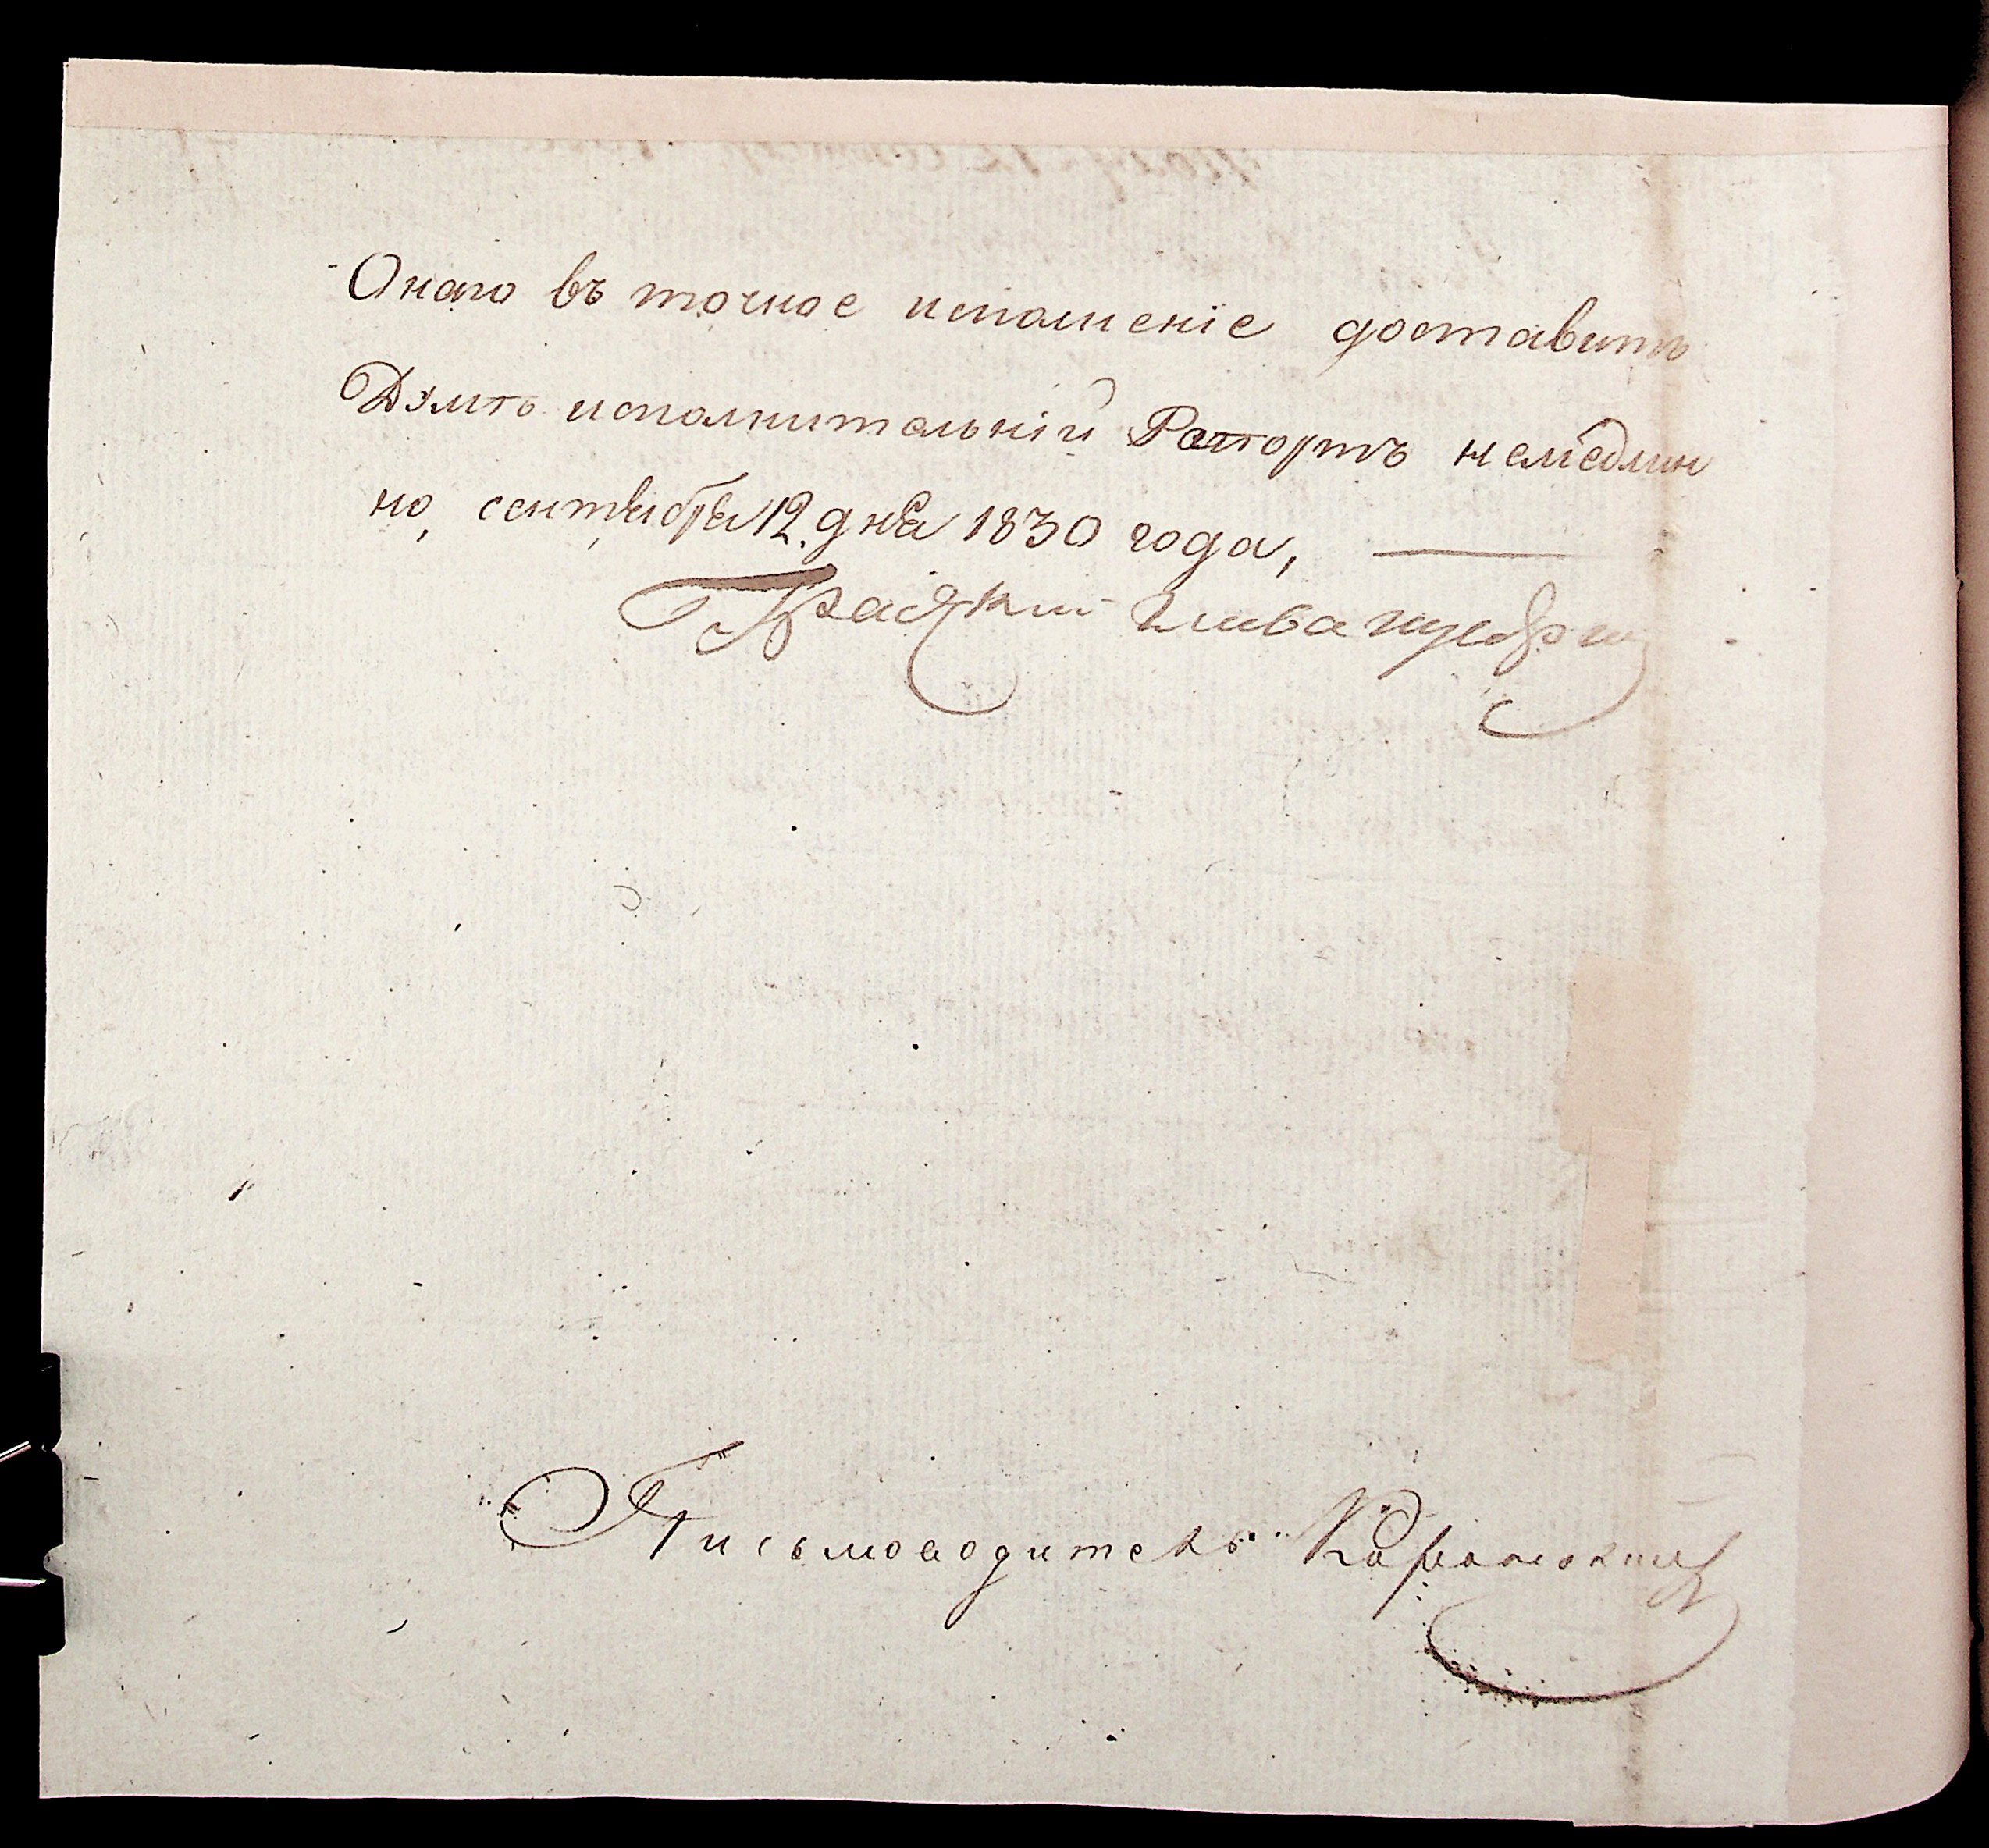 Онаго въ точное исполненіе доставить
Думѣ исполнительній Рапортъ немедлин
но, сентября 12. дня 1830 года,
Градскій Глава
Письмоводитель